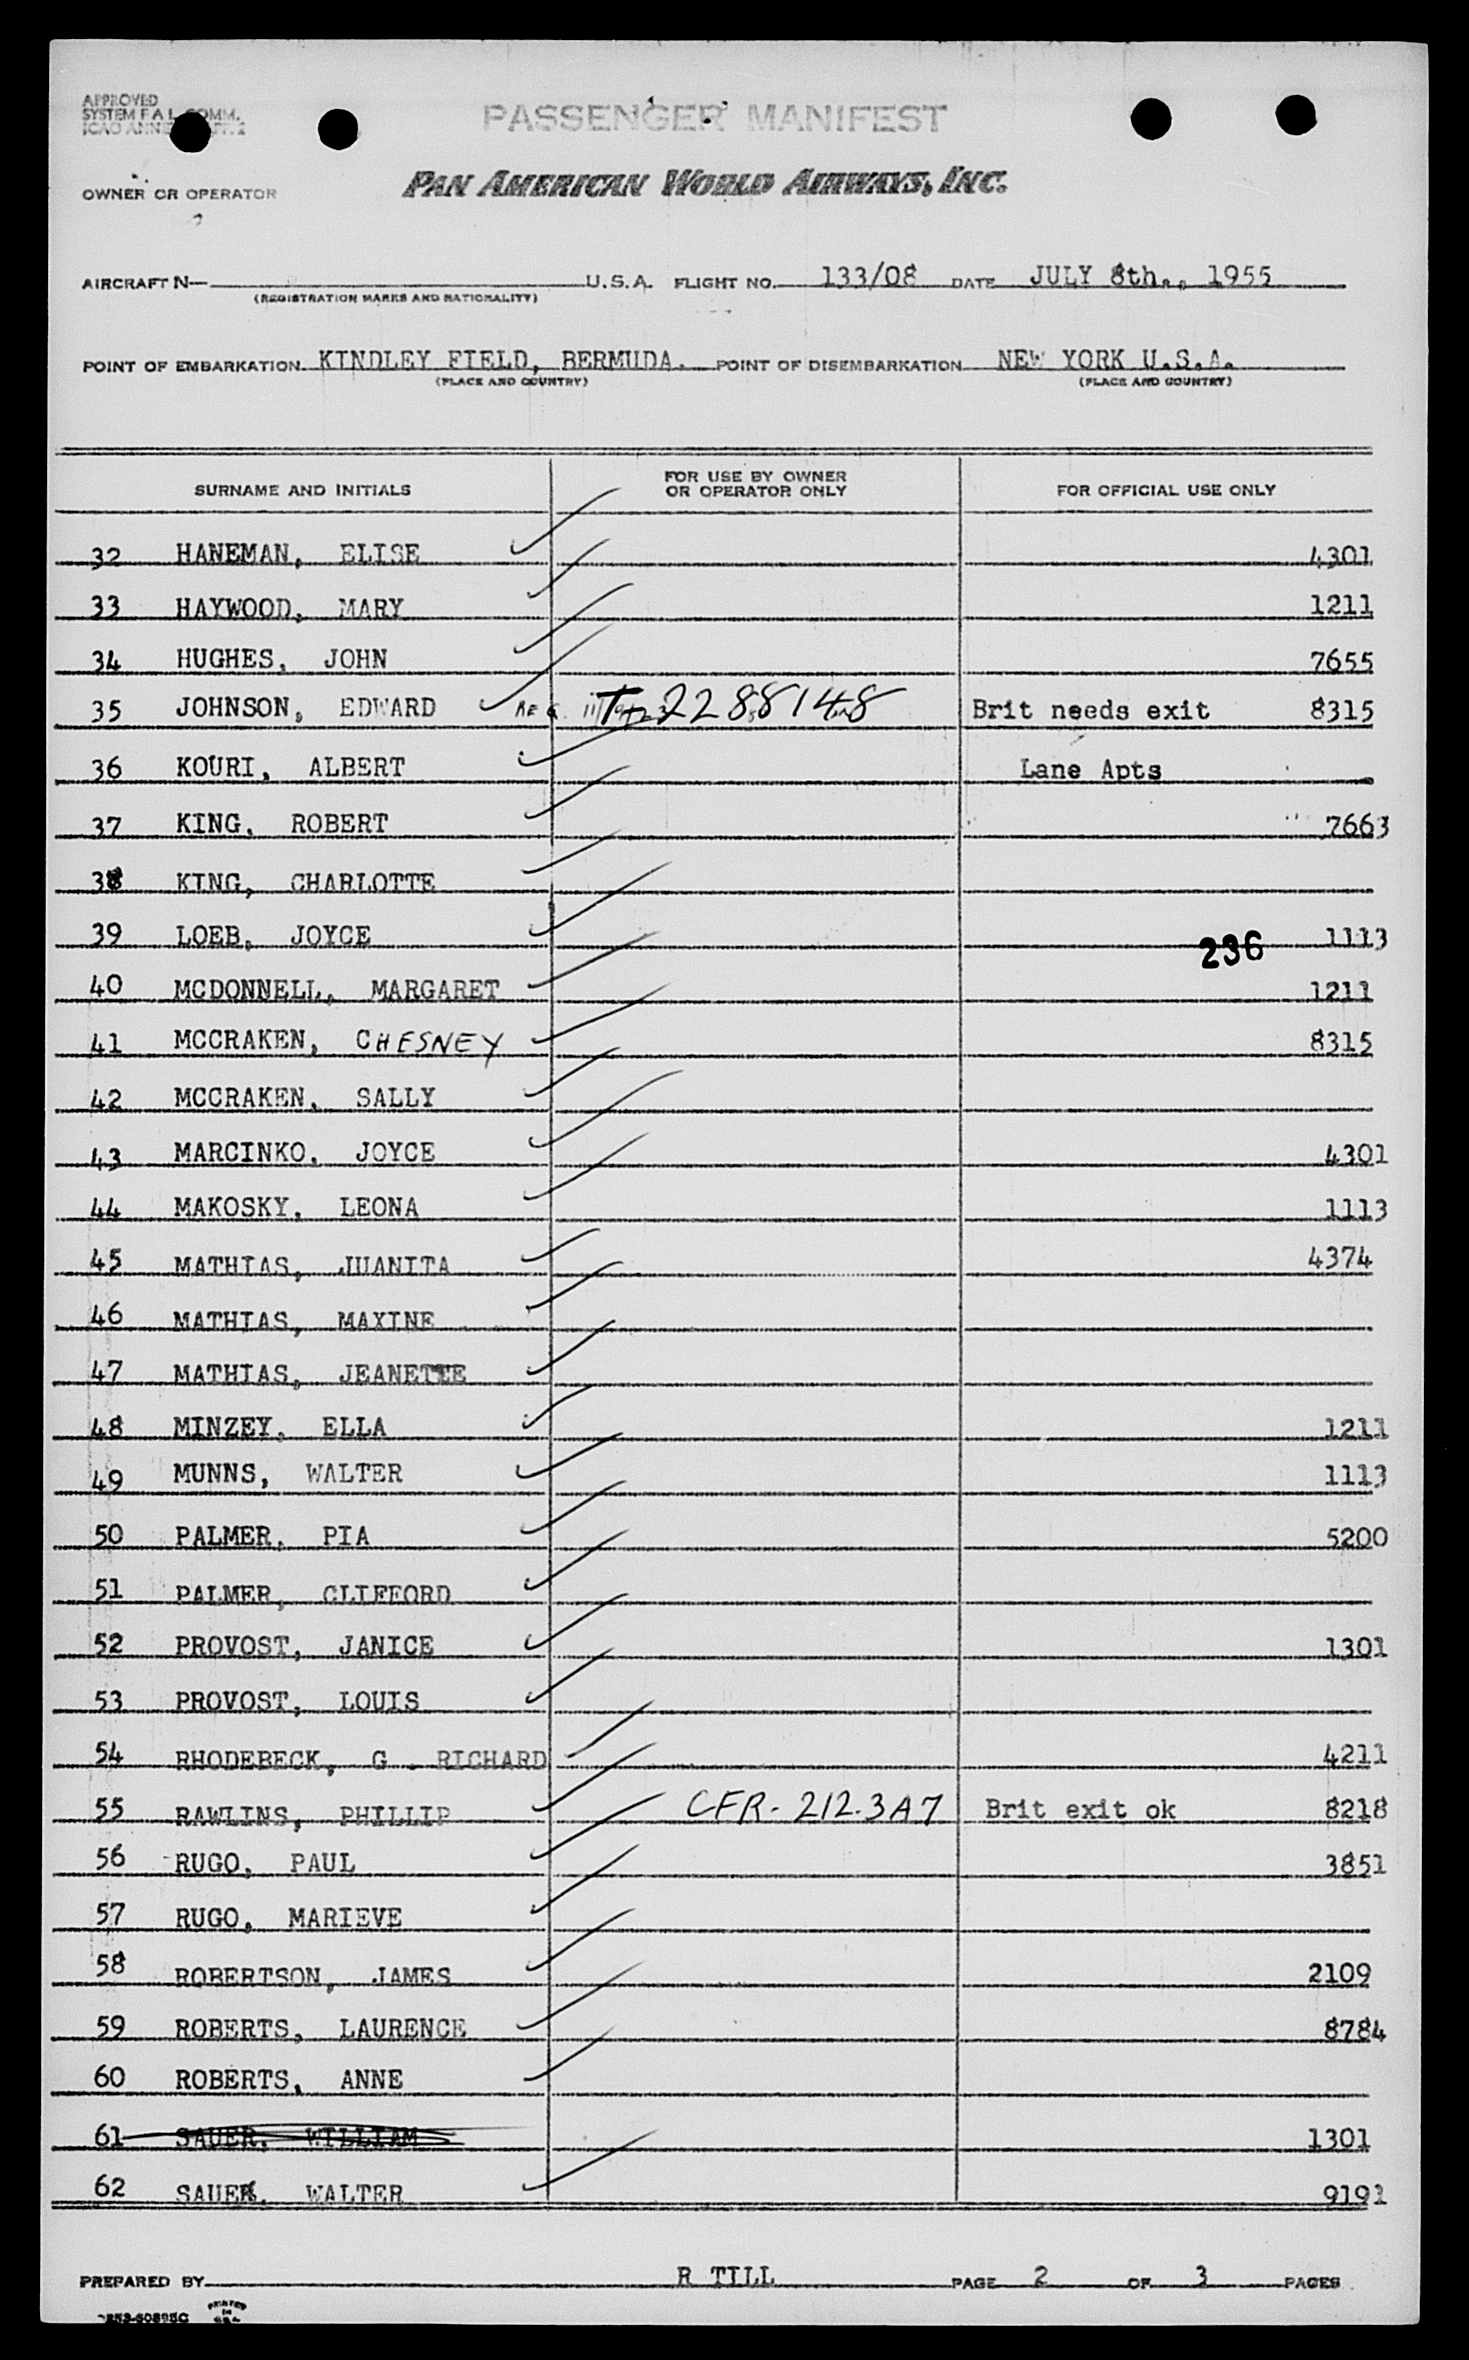 APPROVED
SYSTEM F A L COMM.
PASSENGER MANIFEST
OWNER OR OPERATOR PAN AMERICAN WORLD AIRWAYS, INC.
AIRCRAFT N— U.S.A. FLIGHT NO. 133/08 DATE JULY 8th., 1955
(REGISTRATION MARKS AND NATIONALITY)
POINT OF EMBARKATION KINDLEY FIELD, BERMUDA. POINT OF DISEMBARKATION NEW YORK U.S.A.
(PLACE AND COUNTRY) (PLACE AND COUNTRY)
SURNAME AND INITIALS FOR USE BY OWNER OR OPERATOR ONLY FOR OFFICIAL USE ONLY
32 HANEMAN, ELISE 4301
33 HAYWOOD, MARY 1211
34 HUGHES, JOHN 7655
35 JOHNSON, EDWARD 2288148 Brit needs exit 8315
36 KOURI, ALBERT Lane Apts
37 KING, ROBERT 7663
38 KING, CHARLOTTE
39 LOEB, JOYCE 236 1113
40 MCDONNELL, MARGARET 1211
41 MCCRAKEN, CHESNEY 8315
42 MCCRAKEN, SALLY
43 MARCINKO, JOYCE 4301
44 MAKOSKY, LEONA 1113
45 MATHIAS, JUANITA 4374
46 MATHIAS, MAXINE
47 MATHIAS, JEANETTE
48 MINZEY, ELLA 1211
49 MUNNS, WALTER 1113
50 PALMER, PIA 5200
51 PALMER, CLIFFORD
52 PROVOST, JANICE 1301
53 PROVOST, LOUIS
54 RHODEBECK, G. RICHARD 4211
55 RAWLINS, PHILLIP CFR-212.3A7 Brit exit ok 8218
56 RUGO, PAUL 3851
57 RUGO, MARIEVE
58 ROBERTSON, JAMES 2109
59 ROBERTS, LAURENCE 8784
60 ROBERTS, ANNE
61 SAUER, WILLIAM 1301
62 SAUER, WALTER 9191
PREPARED BY R TILL PAGE 2 OF 3 PAGES
PRINTED IN U.S.A.